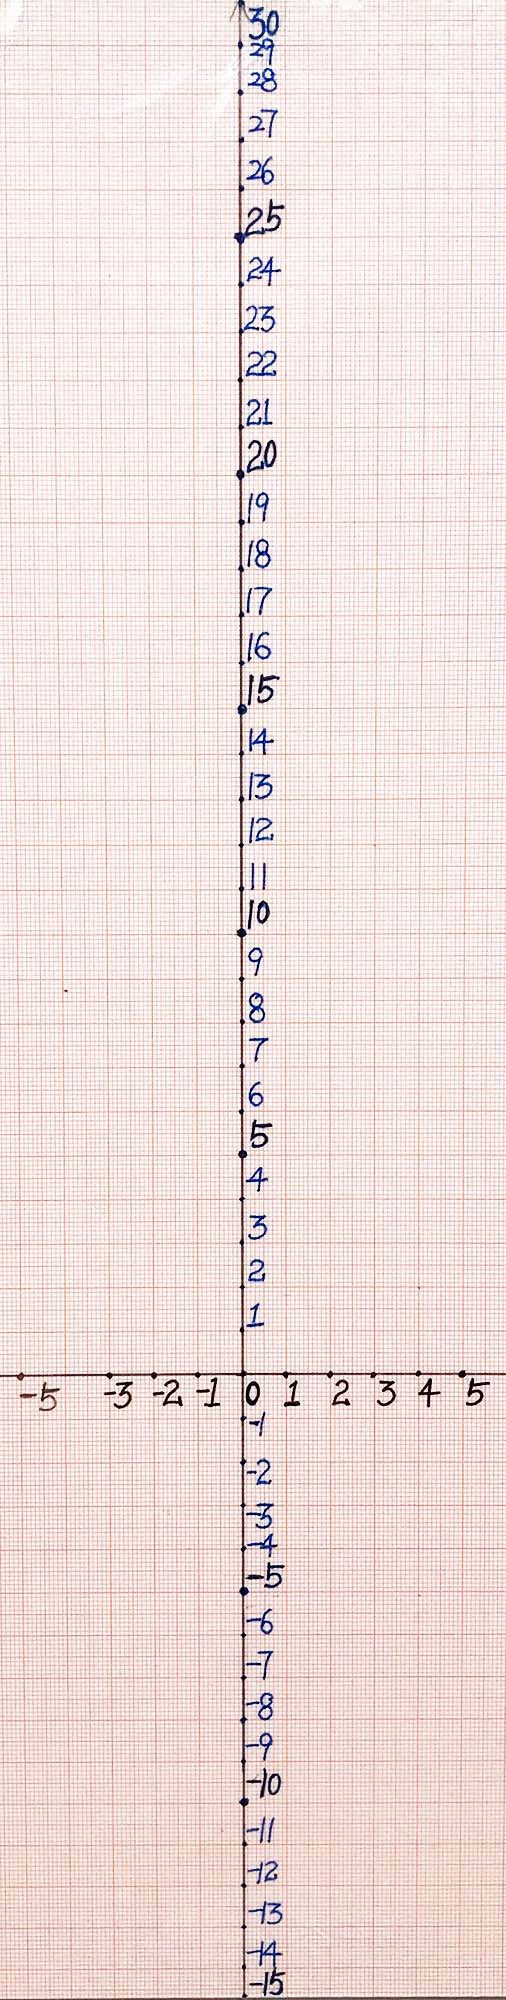 30
29
28
27
26
25
24
23
22
21
20
19
18
17
16
15
14
13
12
11
10
9
8
7
6
5
4
3
2
1
-5 -3 -2 -1 0 1 2 3 4 5
-1
-2
-3
-4
-5
-6
-7
-8
-9
-10
-11
-12
-13
-14
-15